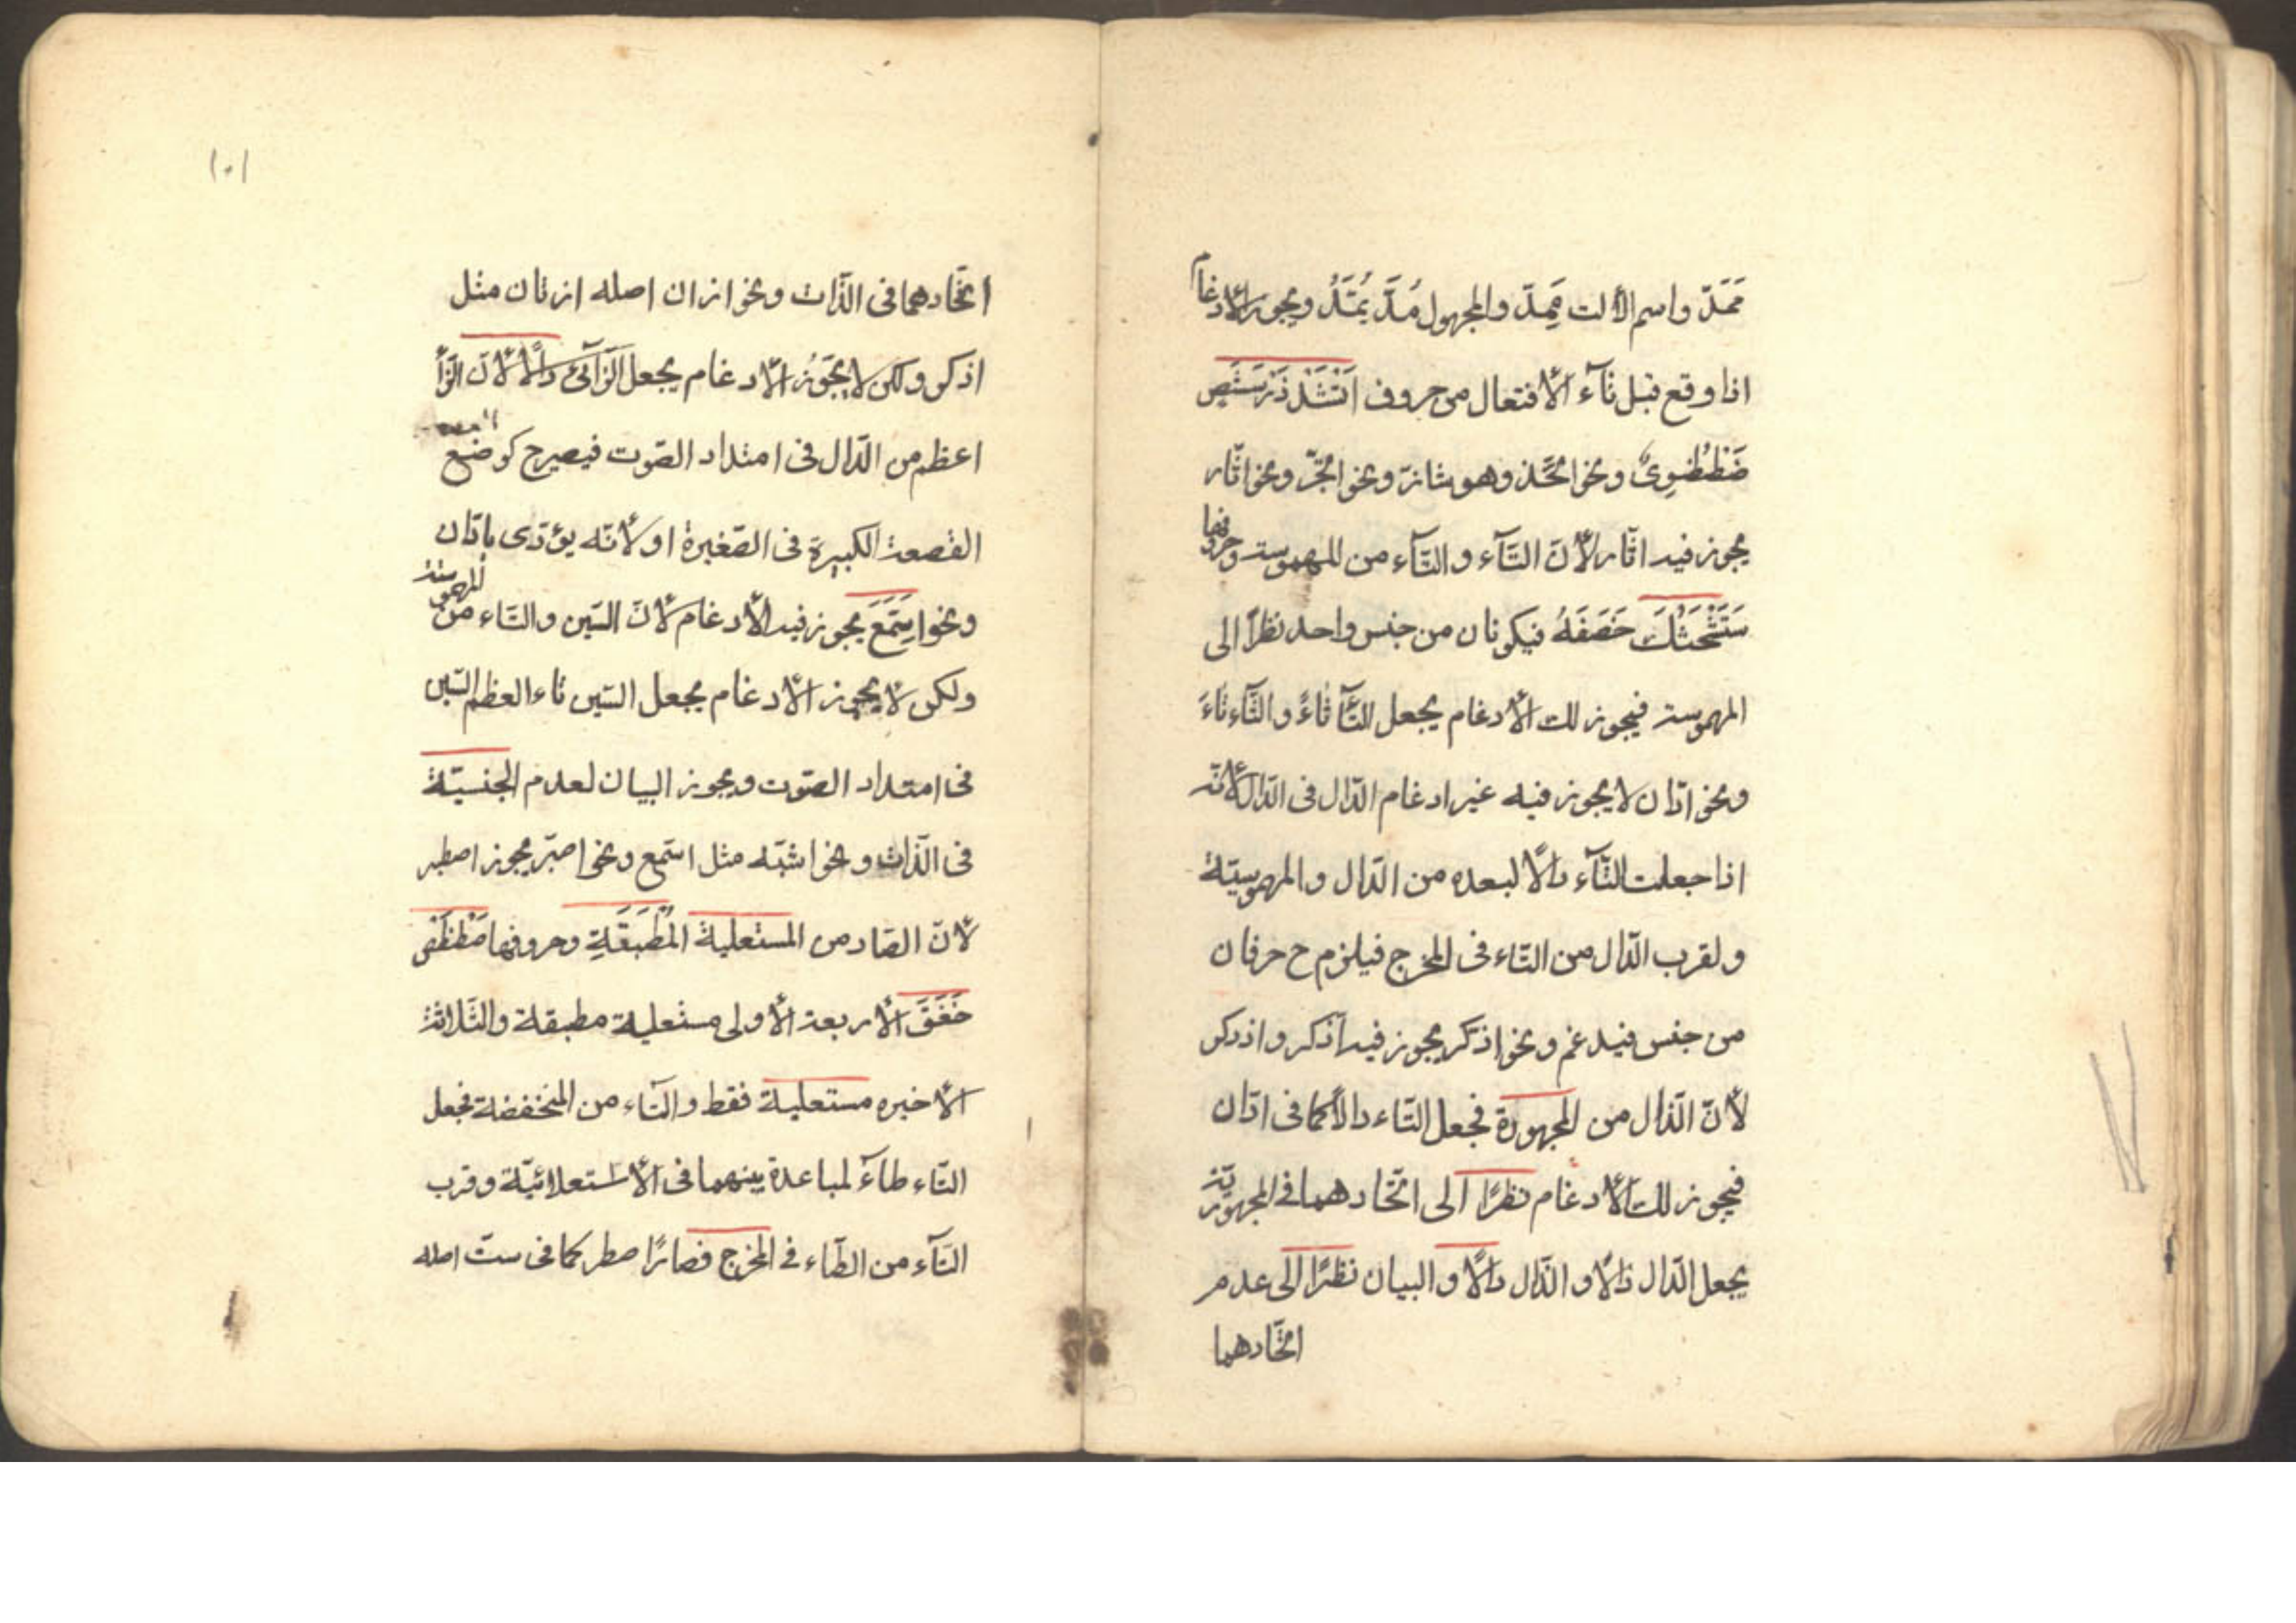 ممَدّ واسم الألت مِمِدّ والمجهول مُدَّ يُمَتَدُّ ويجوز الأدغام
اذا وقع قبل تآء الأفتعال من حروف اَتْثَدْ ذَزْسَشَصٍ
ضَطْظُوِىٌ ونحو اتّخذ وهو شاذ ونحو اتّجر ونحو اثّار
يجوز فيه اتّار لأنّ الثّآء والتّآء من المهموسة وحروفها
سَتَشْحَثُكَ خَصَفَهُ فيكونان من جنس واحد نظرًا الى
المهموسة فيجوز لك الأدغام يجعل التّآ ثاءً والثّآء تاءَ
ونحو ادّان لا يجوز فيه غير ادغام الدّال فى الدّال لأنّه
اذا جعلت التّآء دالًا لبعده من الدّال والمهموسيّة
ولقرب الدّال من التّاء فى المخرج فيلزم ح حرفان
من جنس فيدغم ونحو اذكّر يجوز فيه اذكر واذدكر
لأنّ الذّال من المجهورة فجعل التّاء دالًا كما فى ادّان
فيجوز لك الأدغام نظرًا الى اتّحادهما فى المجهوريّة
يجعل الدّال ذالًا والذّال دالًا والبيان نظرًا الى عدم
اتّحادهما
١٠١
اتّحادهما فى الذّات ونحو ازان اصله ازتان مثل
اذكر ولكن لا يَجُوزُ الأدغام يجعل الزّآئ دالًا لأنّ الزّأ
اعظم من الدّال فى امتداد الصّوت فيصير ح كوضع
القصعة الكبيرة فى الصّغيرة او لأنّه يؤدّى بادّان
ونحو اسّمَعَ يجوز فيه الأدغام لأنّ السّين والتّاء من المهموسة
ولكن لا يجوز الأدغام يجعل السّين تاء لعظم السّين
فى امتداد الصّوت ويجوز البيان لعدم الجنسيّة
فى الذّات ونحو اشّبه مثل اسّمع ونحو اصبّر يجوز اصطبر
لأنّ الصّاد من المستعلية المُطْبَقَةِ وحروفها صَطْظَضٍ
خَغَقَ الأربعة الأولى مستعلية مطبقة والثّلاثة
الأخيره مستعلية فقط والتّاء من المنخفضة فجعل
التّاء طاءً لمباعدة بينهما فى الأستعلائيّة وقرب
التّآء من الطّاء فى المخرج فصار اصطبر كما فى ستّ اصله